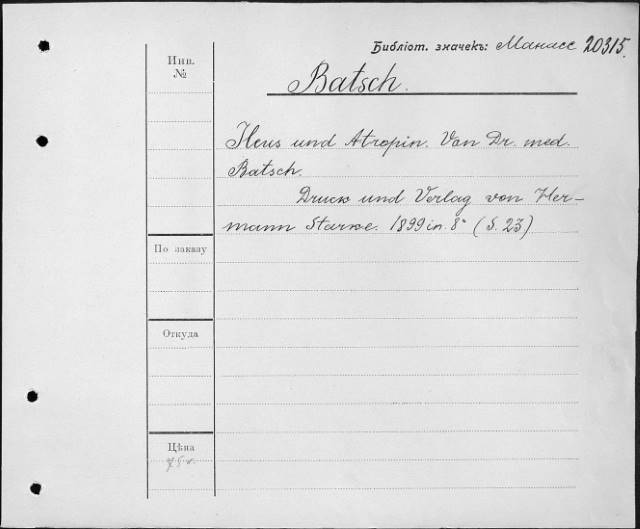 Библіот. значекъ: Манасс 20315.
Инв.
№
Batsch.
Ileus und Atropin. Von Dr. med.
Batsch.
Druck und Verlag von Her-
mann Starke. 1899 in 8° (S. 23)
По заказу
Откуда
Цѣна